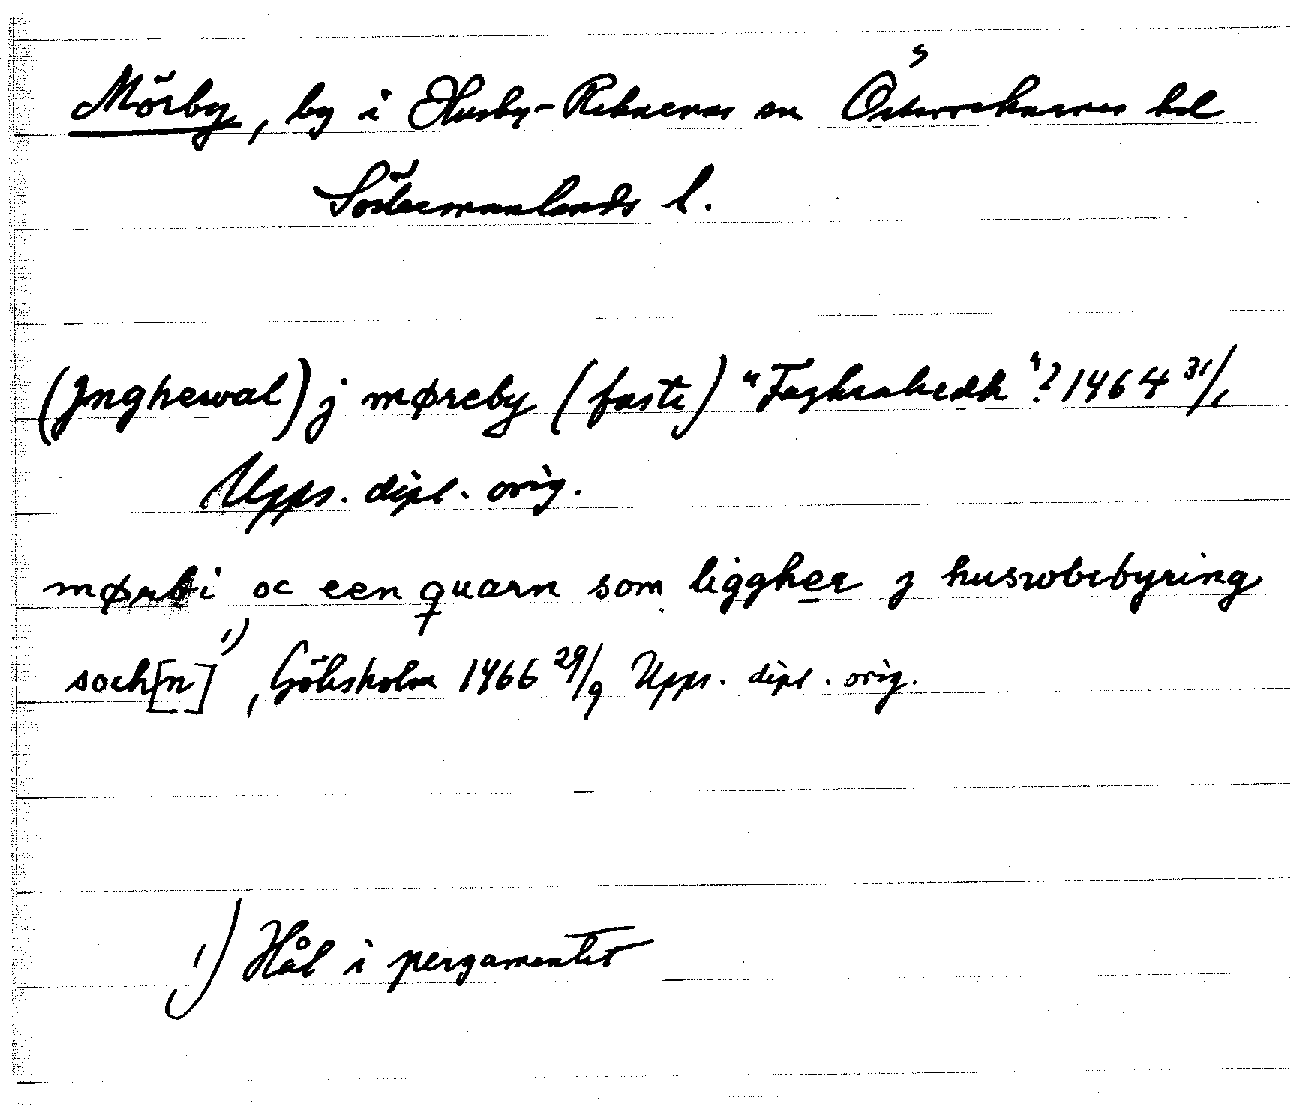 Mörby, by i Husby-Rekarne sn Österrekarnes hd
Södermanlands l.
(Jnghewal) j møreby (faste) " "? 1464 31/1
Upps. dipl. orig.
mørbi oc een quarn som liggher j huswbebyring
soch[n] 1), Göksholm 1466 29/9 Upps. dipl. orig.
1) Hål i pergamentet